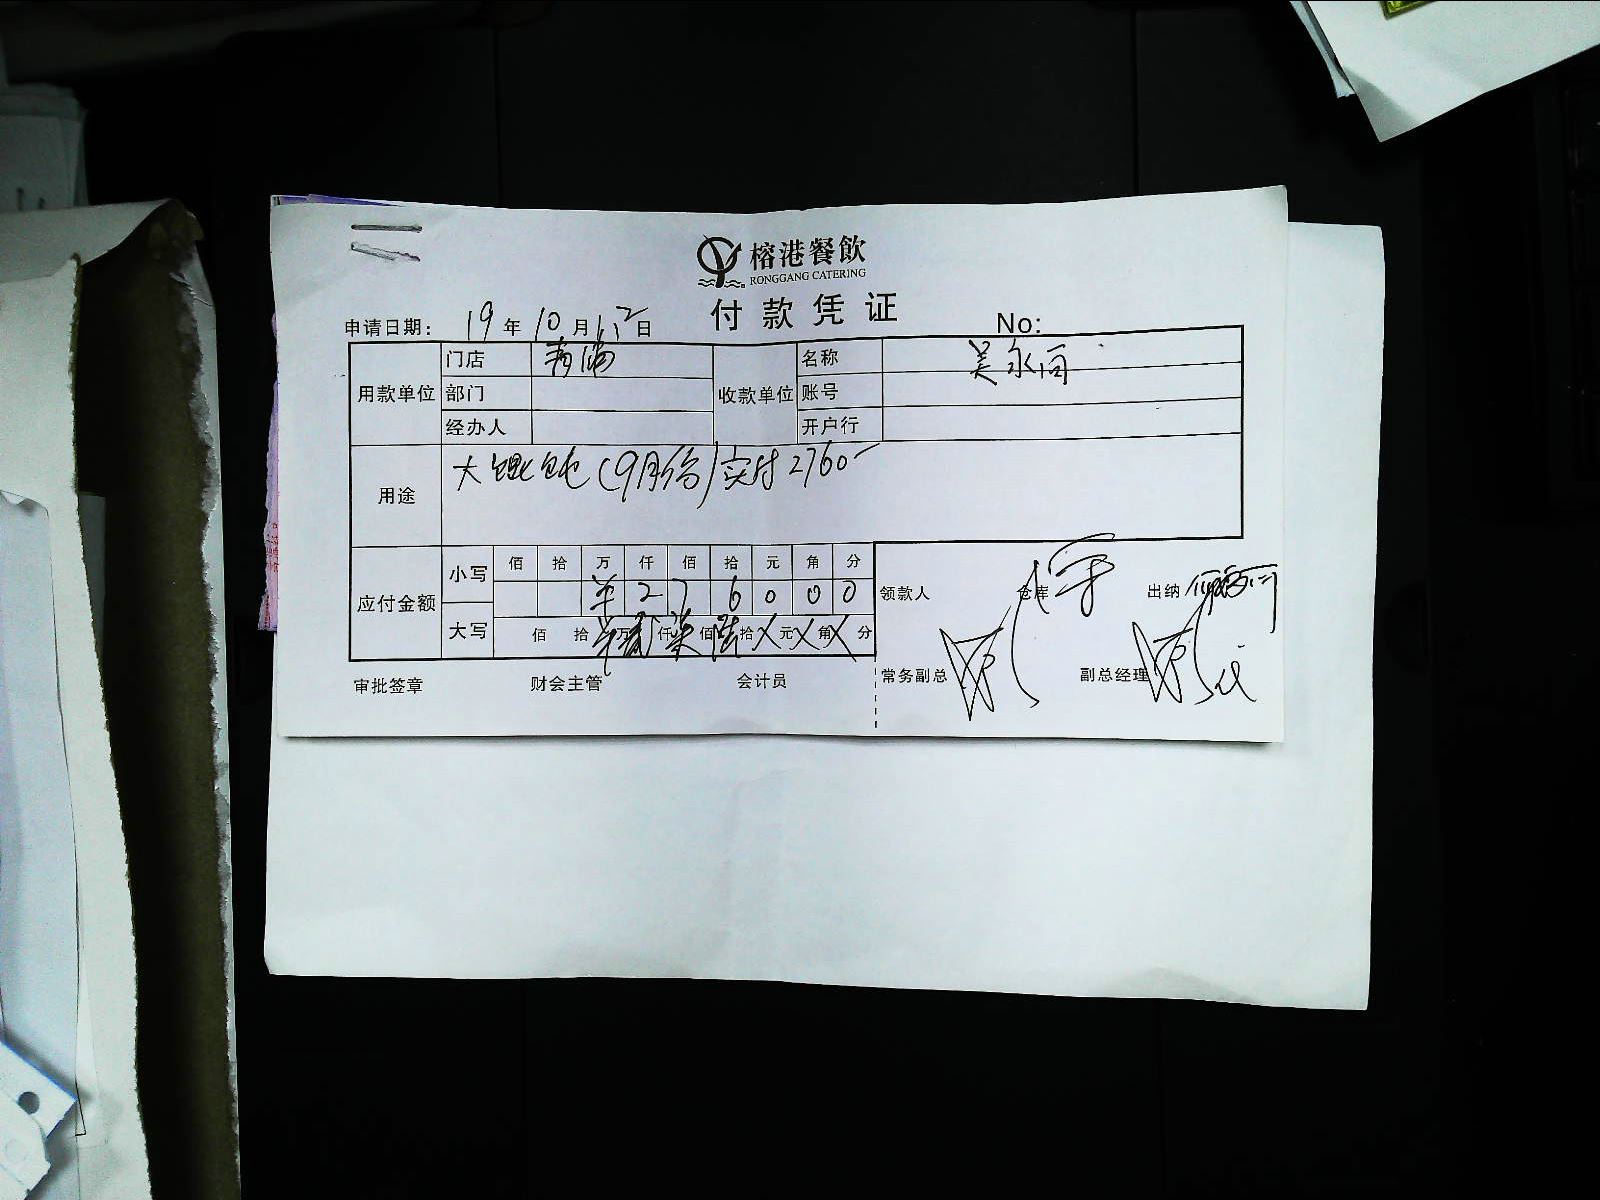 榕港餐飲
RONGGANG CATERING
付款凭证
申请日期: 19年10月12日 No:
用款单位 门店 青浦 收款单位 名称 吴永向
部门 账号
经办人 开户行
用途 大锟饨(9月份)实付2760-
应付金额 小写 佰 拾 万 仟 佰 拾 元 角 分
¥ 2 7 6 0 0 0
大写 佰 拾 万 贰 仟 柒 佰 陆 拾 X 元 X 角 X 分
领款人 仓库 出纳
常务副总 副总经理
审批签章 财会主管 会计员